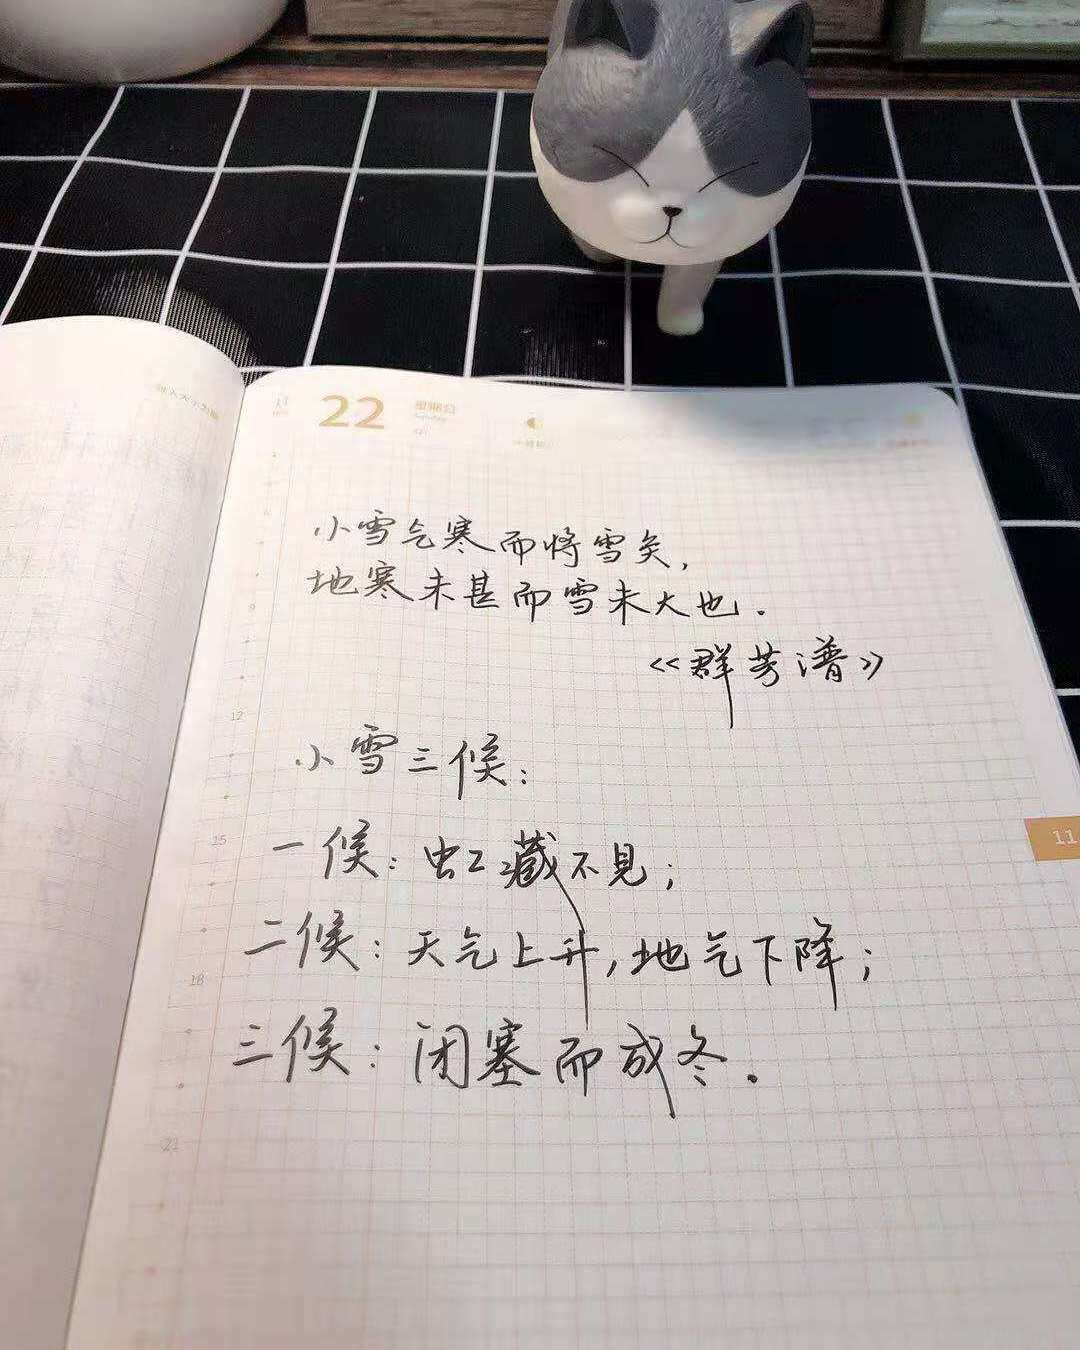 11
22
小雪气寒而将雪矣，
地寒未甚而雪未大也.
《群芳谱》
12
小雪三候：
15
一候：虹藏不见；
11
二候：天气上升，地气下降；
18
三候：闭塞而成冬.
21